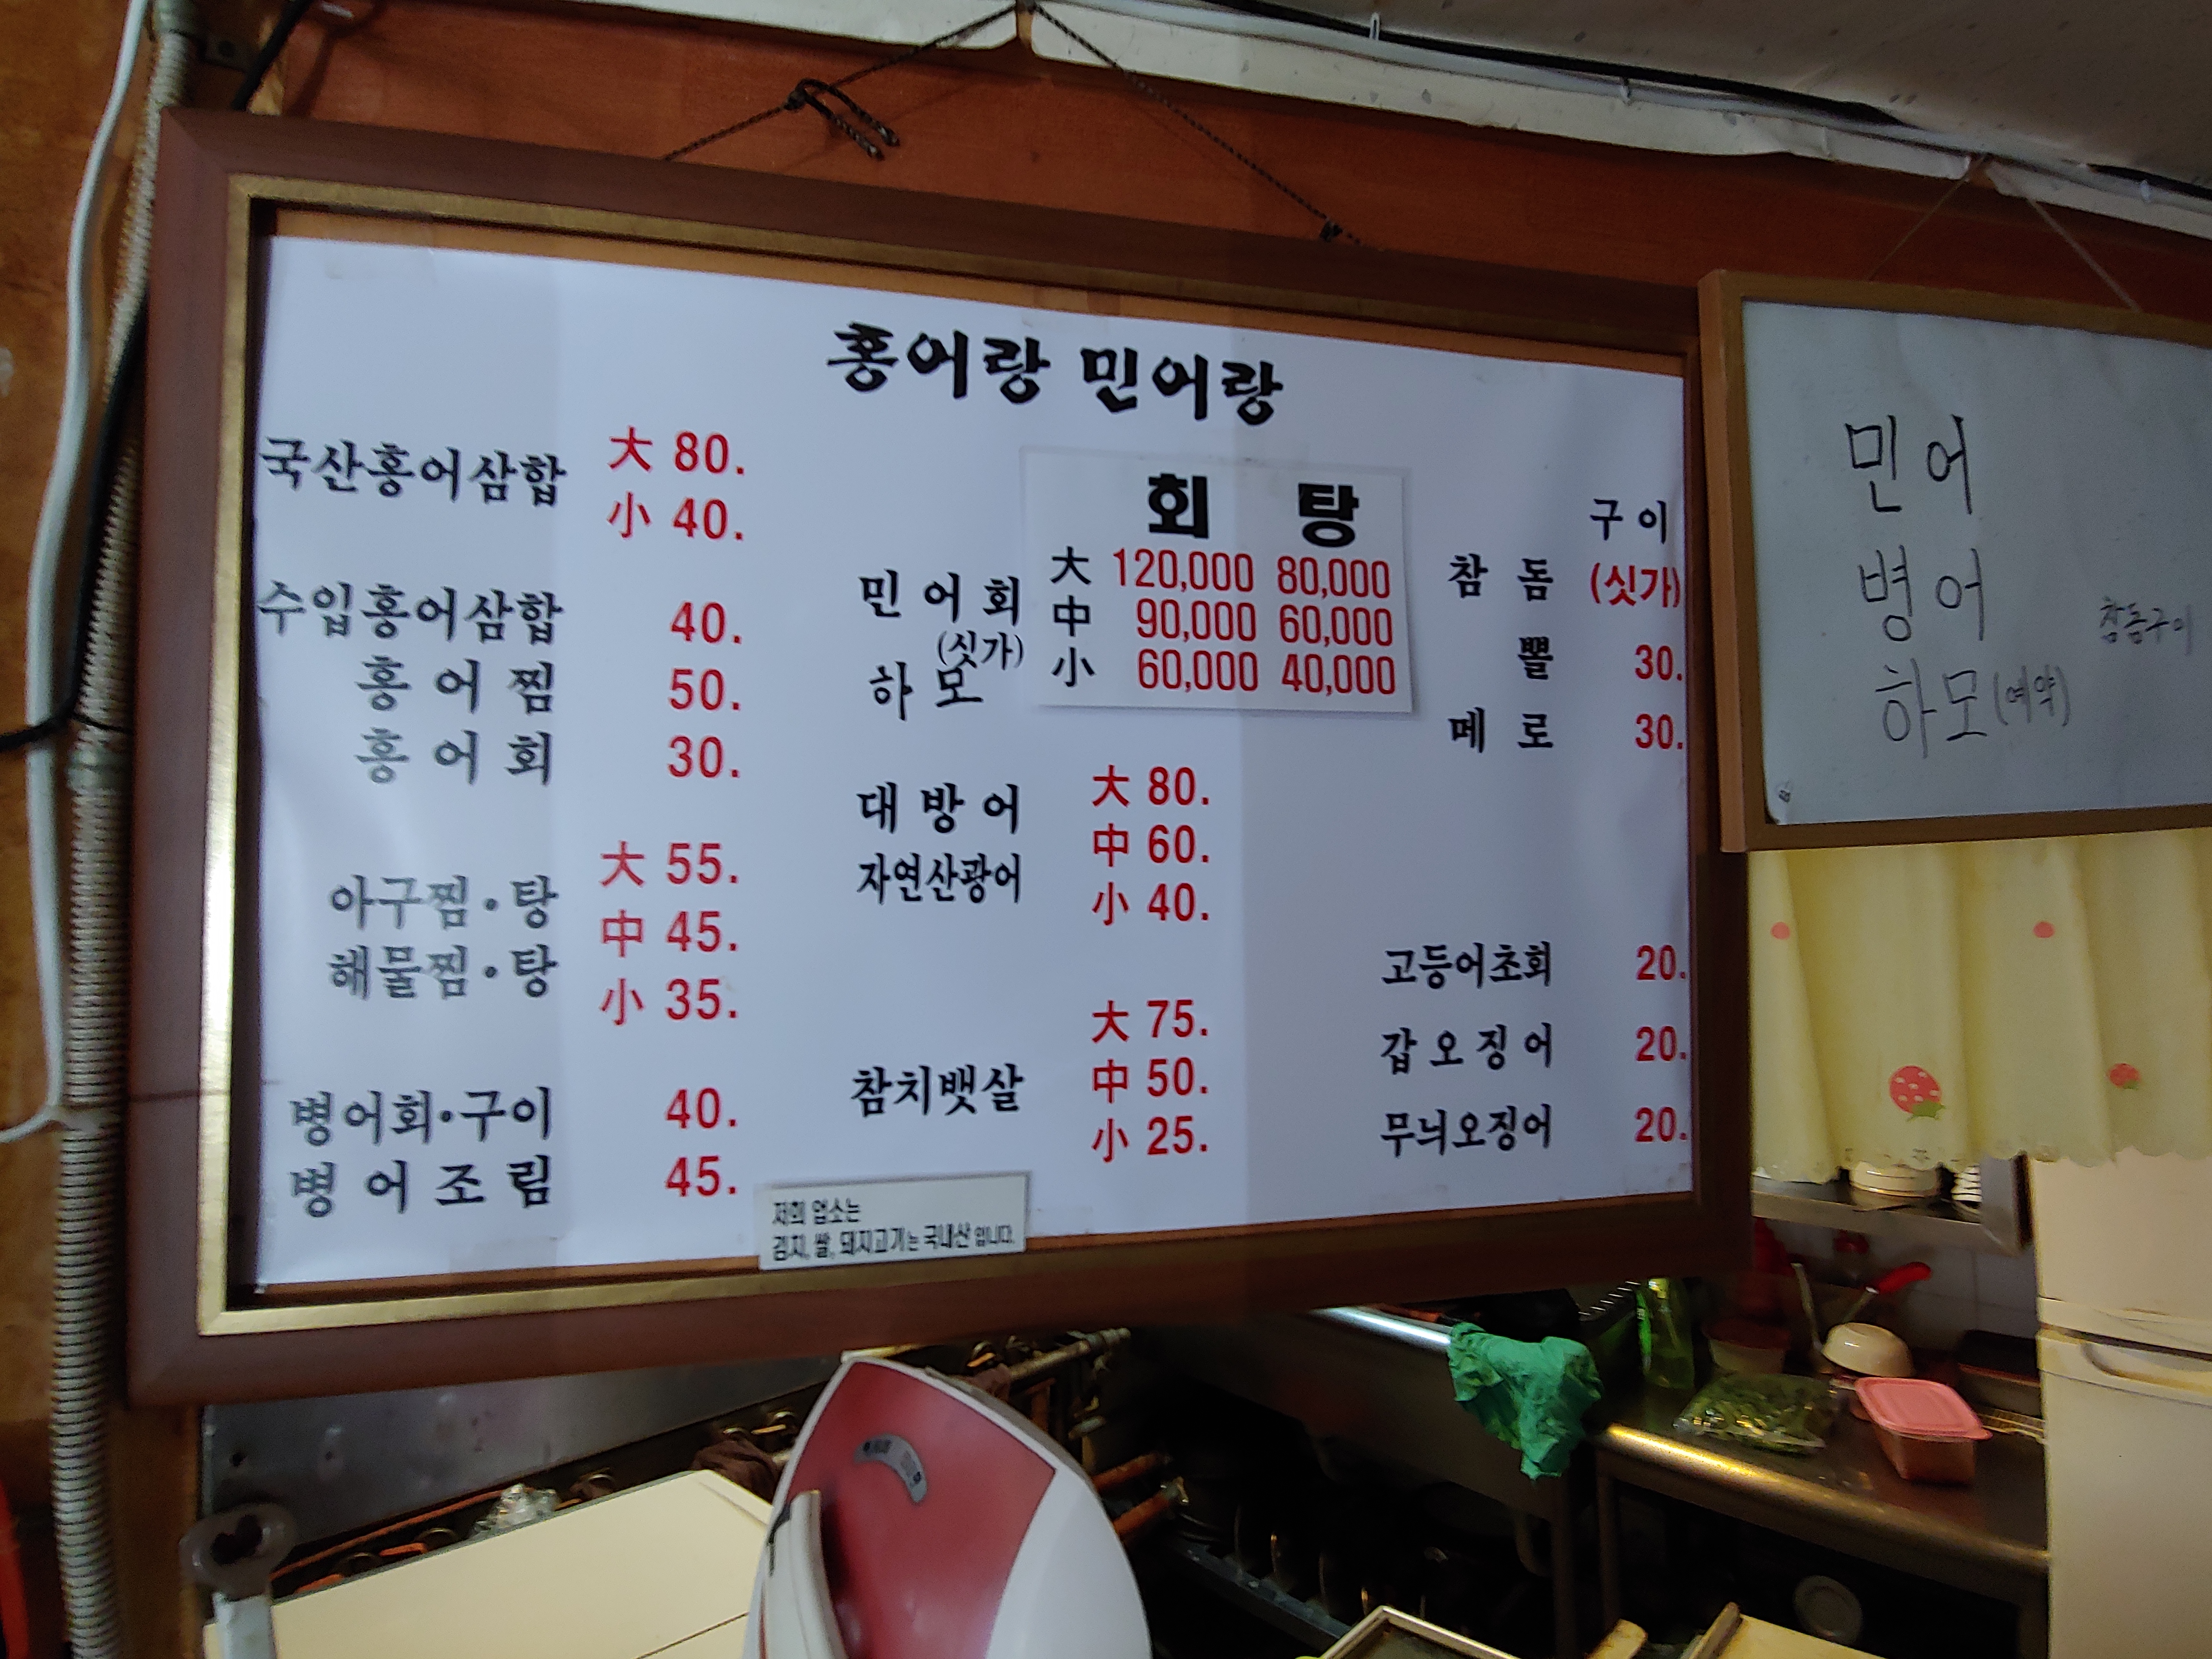 홍어랑 민어랑
국산홍어삼합 大 80.
小 40.
수입홍어삼합 40.
홍어찜 50.
홍어회 30.
아구찜·탕
해물찜·탕
大 55.
中 45.
小 35.
병어회·구이 40.
병어조림 45.
회 탕
민어회
(싯가)
하모
大 120,000 80,000
中 90,000 60,000
小 60,000 40,000
대방어
자연산광어
大 80.
中 60.
小 40.
참치뱃살
大 75.
中 50.
小 25.
구이
참돔 (싯가)
뽈 30.
메로 30.
고등어초회 20.
갑오징어 20.
무늬오징어 20.
저희 업소는
김치, 쌀, 돼지고기는 국내산 입니다.
민어
병어
하모(예약)
참돔구이